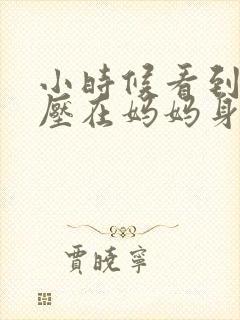 小時候看到
壓在妈妈身
賈曉寧